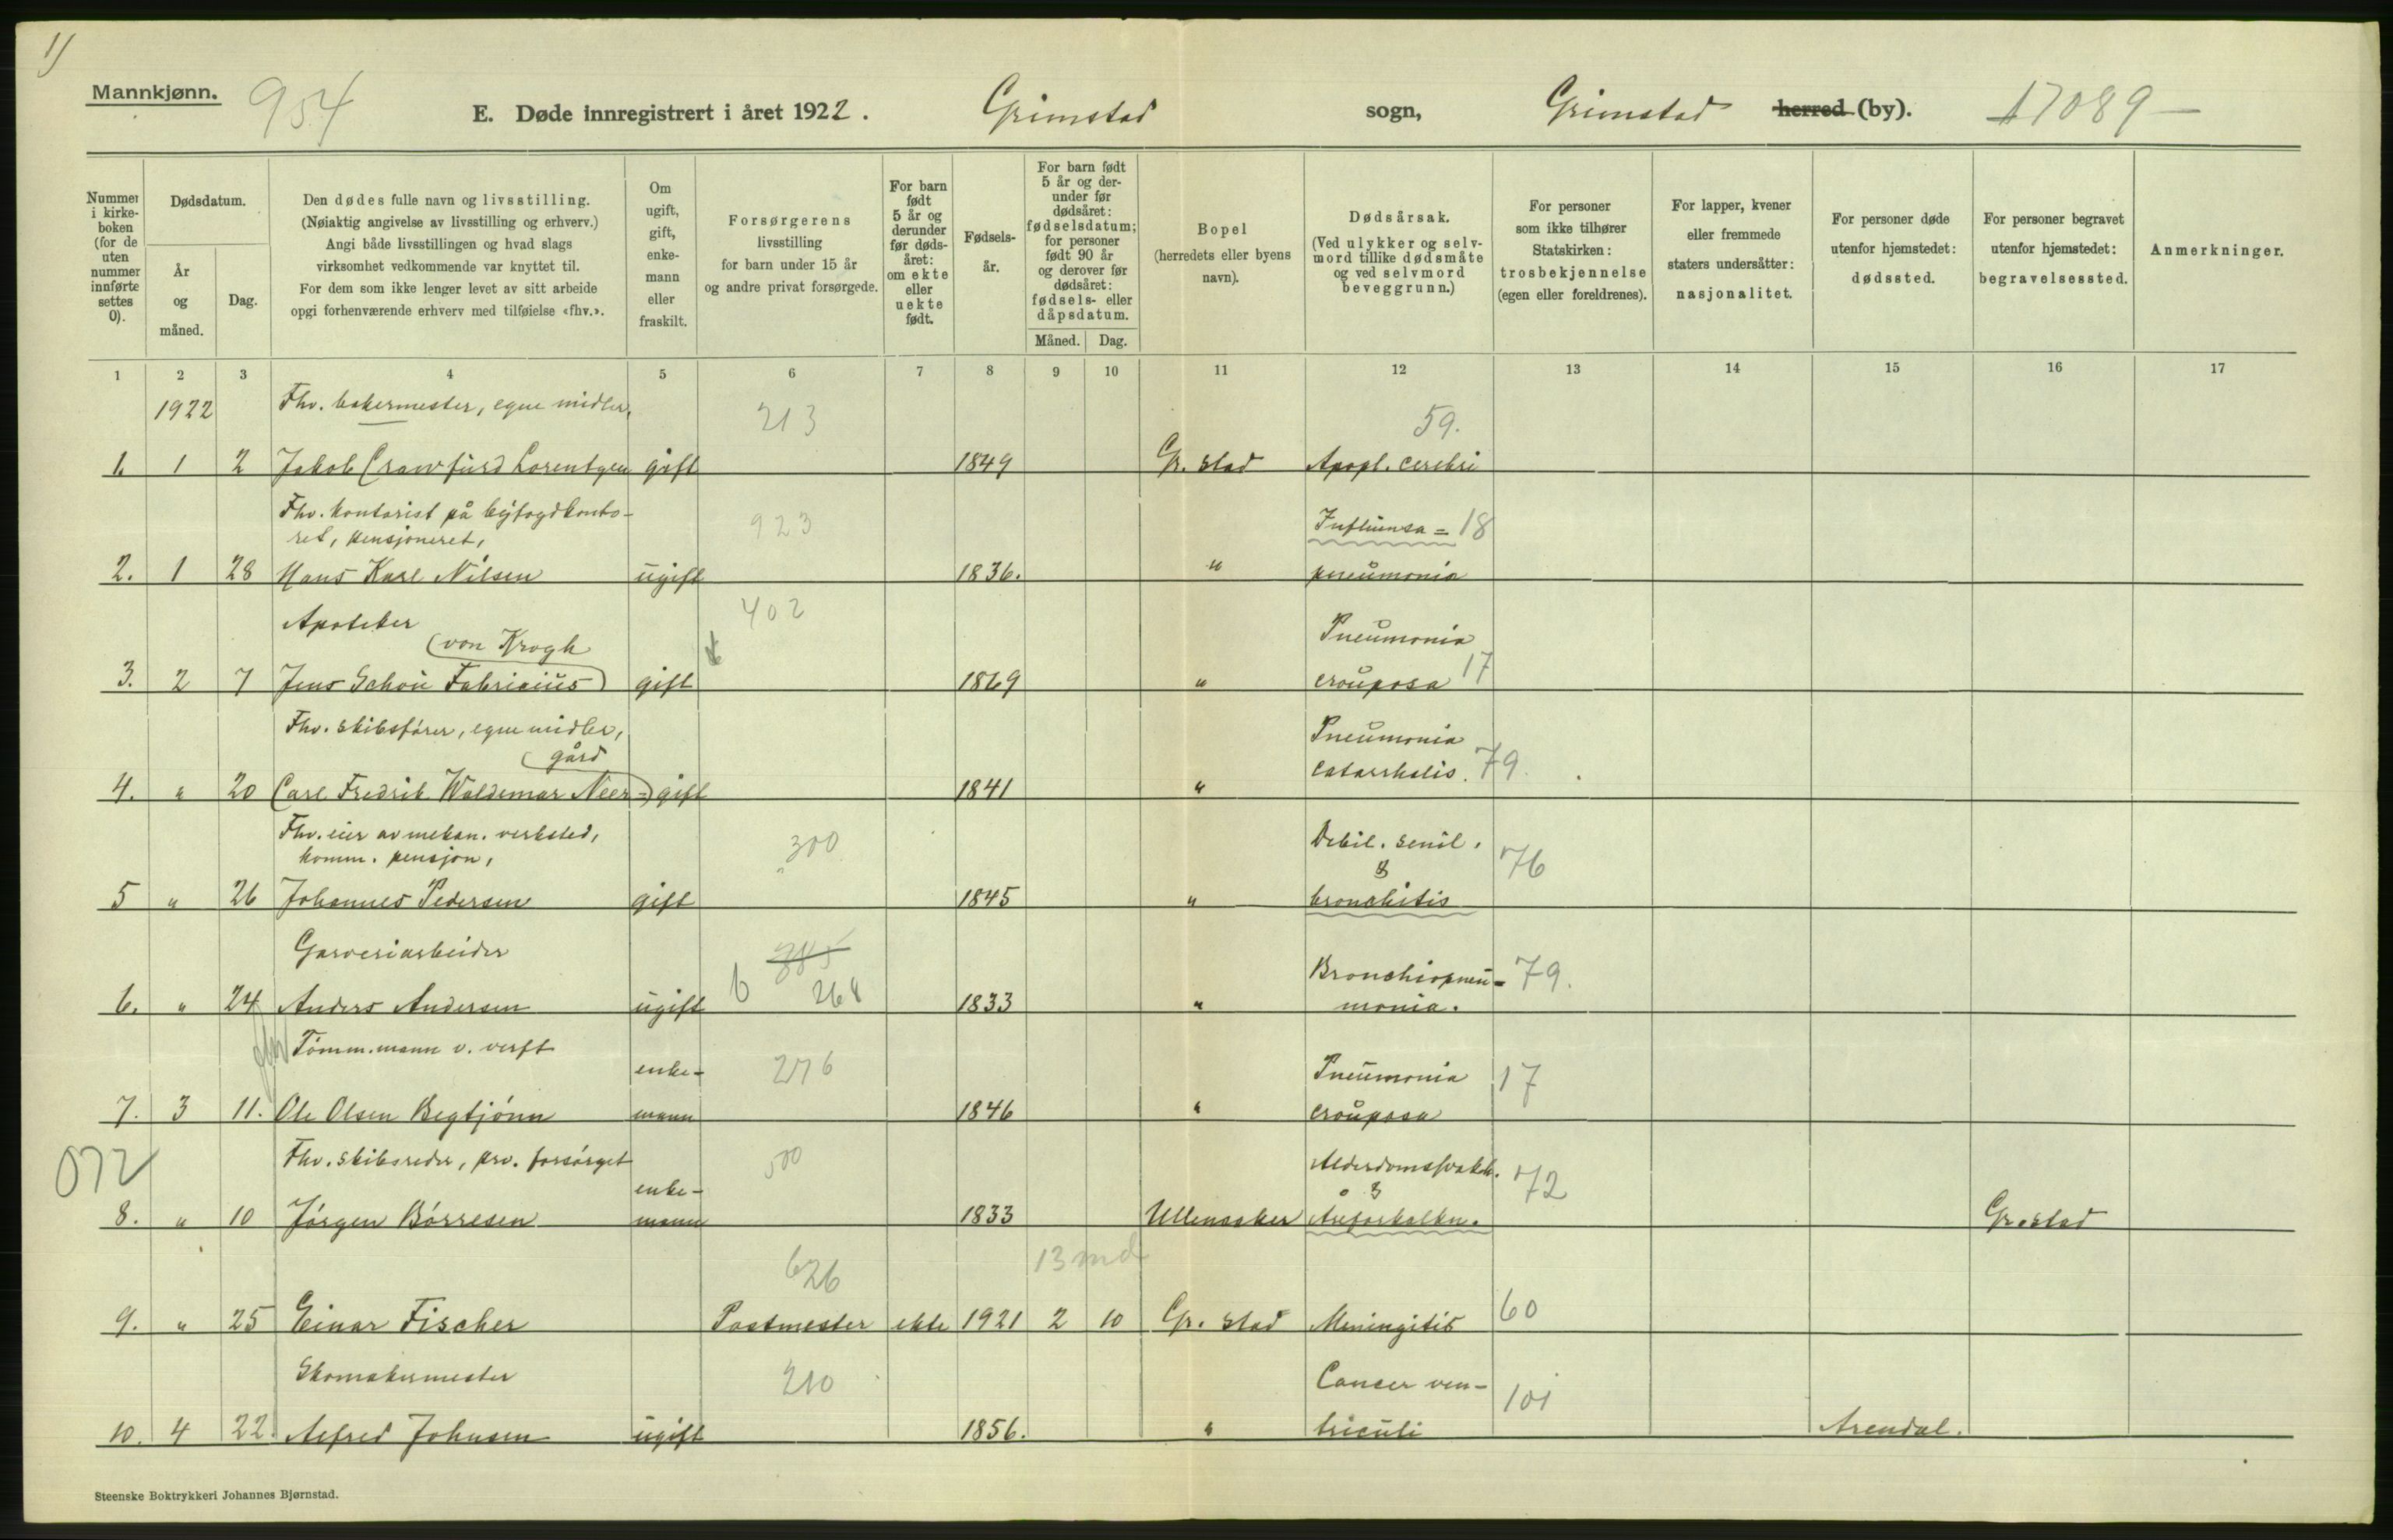 1)
Mannkjønn.
954
E. Døde innregistrert i året 1922. Grimstad sogn, Grimstad herred (by). 17089 —
Nummer i kirkeboken (for de uten nummer innførte settes 0).
Dødsdatum.
År og måned.
Dag.
Den dødes fulle navn og livsstilling.
(Nøiaktig angivelse av livsstilling og erhverv.)
Angi både livsstillingen og hvad slags
virksomhet vedkommende var knyttet til.
For dem som ikke lenger levet av sitt arbeide
opgi forhenværende erhverv med tilføielse «fhv.».
Om ugift, gift, enkemann eller fraskilt.
Forsørgerens
livsstilling
for barn under 15 år
og andre privat forsørgede.
For barn født 5 år og derunder før dødsåret: om ekte eller uekte født.
Fødselsår.
For barn født 5 år og derunder før dødsåret: fødselsdatum; for personer født 90 år og derover før dødsåret: fødsels- eller dåpsdatum.
Måned.
Dag.
Bopel
(herredets eller byens
navn).
Dødsårsak.
(Ved ulykker og selvmord tillike dødsmåte og ved selvmord beveggrunn.)
For personer
som ikke tilhører
Statskirken:
trosbekjennelse
(egen eller foreldrenes).
For lapper, kvener
eller fremmede
staters undersåtter:
nasjonalitet.
For personer døde
utenfor hjemstedet:
dødssted.
For personer begravet
utenfor hjemstedet:
begravelsessted.
Anmerkninger.
1 2 3 4 5 6 7 8 9 10 11 12 13 14 15 16 17
1922 Fhv. bakermester, egne midler, 213 59.
1. 1 2 Jakob Crawfurd Lorentzen gift 1849 Gr.stad Apopl. cerebri
Fhv. kontorist på byfogdkonto-
ret, pensjoneret, 923 Influensa = 18
2. 1 28 Hans Karl Nilsen ugift 1836. " pneumonia
Apoteker 402
(von Krogh Pneumonia
3. 2 7 Jens Schou Fabricius) gift 1869 " crouposa 17
Fhv. skibsfører, egne midler, Pneumonia
(gård catarrhalis. 79.
4. " 20 Carl Fredrik Waldemar Neer=) gift 1841 "
Fhv. eier av mekan. verksted, 300 Debil. senil.
komm. pensjon, & 76
5 " 26 Johannes Pedersen gift 1845 " bronchitis
Garveriarbeider 885
6 268 Bronchiopneu= 79.
6. " 24 Anders Andersen ugift 1833 " monia.
fhv Tømm.mann v. verft enke- 276 Pneumonia 17
7. 3 11. Ole Olsen Begtjønn mann 1846 " crouposa
072 Fhv. skibsreder, prv. forsørget enke- 500 Alderdomssvakh. & 72
8. " 10 Jørgen Børresen mann 1833 Ullensaker Åreforkalkn. Gr.stad
626 13 md
9. " 25 Einar Fischer Postmester ekte 1921 2 10 Gr. stad Meningitis 60
Skomakermester 210 Cancer ven- 101
10. 4 22. Alfred Johnsen ugift 1856. " triculi Arendal.
Steenske Boktrykkeri Johannes Bjørnstad.